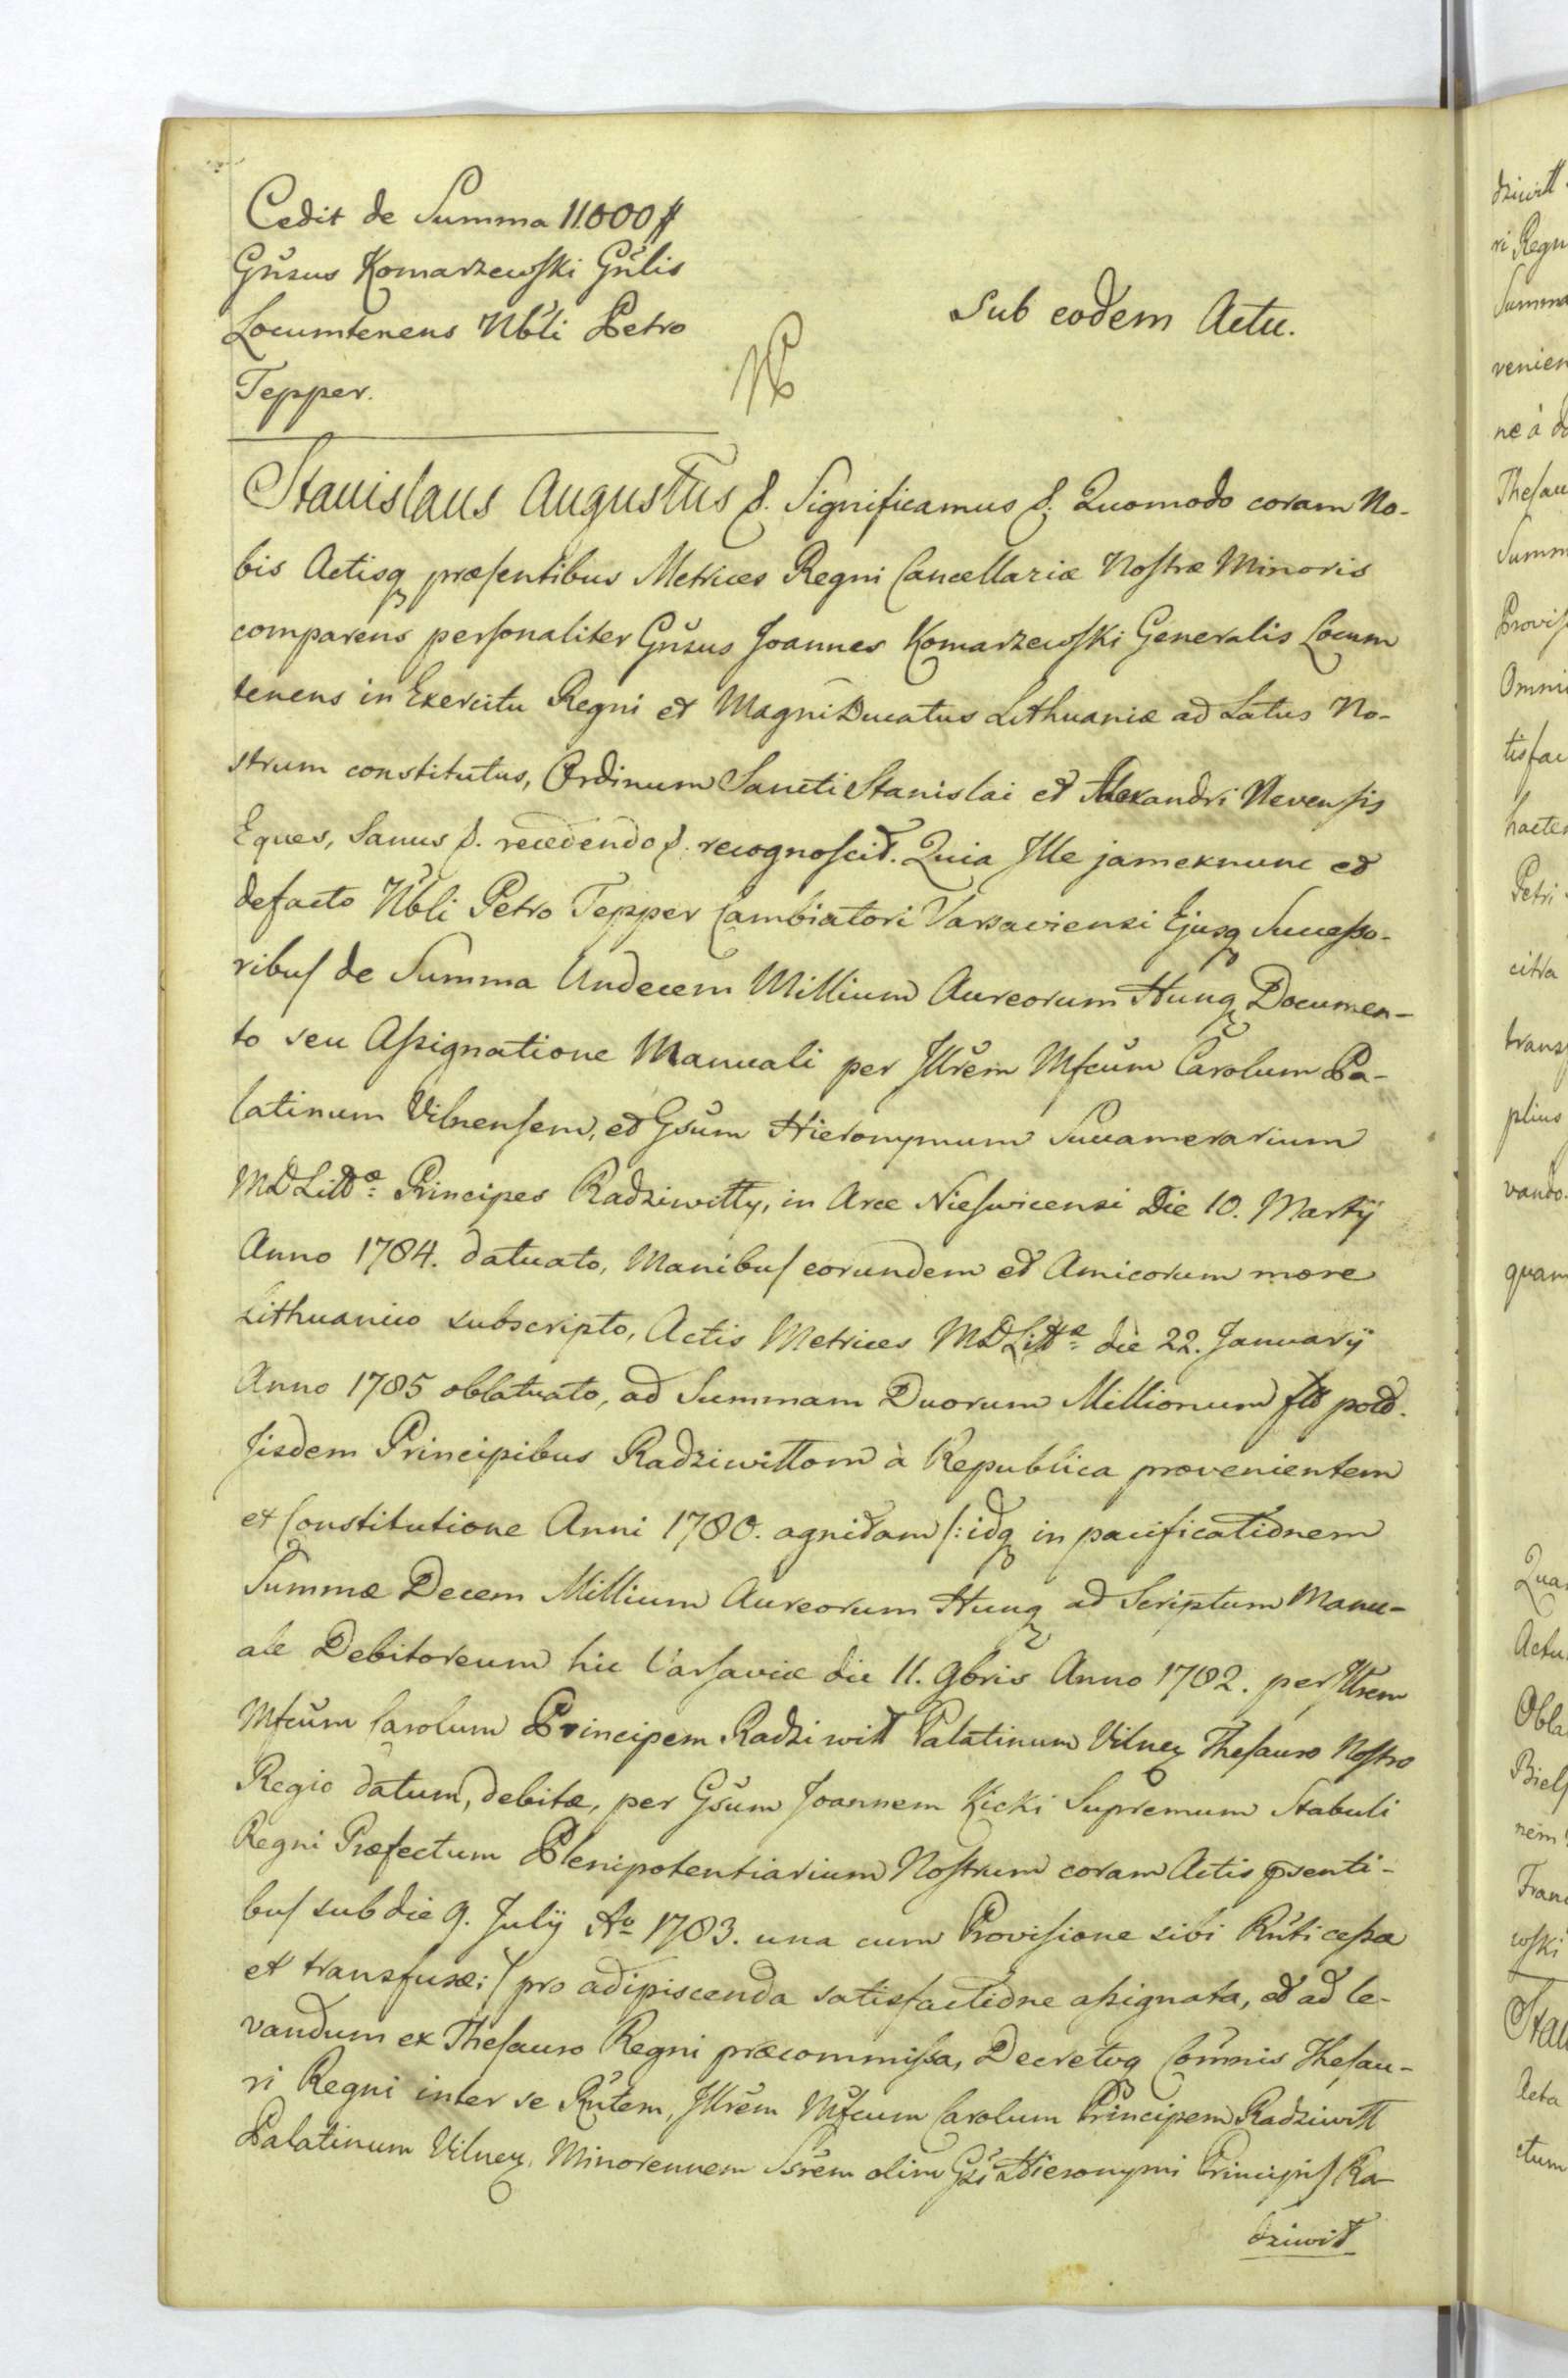 Cedit de Summa 11000 #
Gnsus Komarzewski Gnlis
Locumtenens Nbli Petro
Tepper.
Sub eodem Actu.
Stanislaus Augustus &. Significamus &. Quomodo coram No-
bis Actisq præsentibus Metrices Regni Cancellariæ Nostræ Minoris
comparens personaliter Gnsus Joannes Komarzewski Generalis Locum
tenens in Exercitu Regni et Magni Ducatus Lithuaniæ ad Latus No-
strum constitutus, Ordinum Sancti Stanislai et Alexandri Nevensis
Eques, Sanus &. recedendo &. recognoscit. Quia Ille jamexnunc et
defacto Nbli Petro Tepper Cambiatori Varsaviensi Ejusq Successo-
ribus de Summa Undecem Millium Aureorum Hung Documen-
to seu Assignatione Manuali per Illrem Mfcum Carolum Pa-
latinum Vilnensem, et Gsum Hieronymum Succamerarium
MDLittæ: Principes Radziwiłły, in Arce Nieswicensi Die 10. Martij
Anno 1784. datuato, Manibus eorundem et Amicorum more
Lithuanico subscripto, Actis Metrices MDLittæ: die 22. Januarij
Anno 1785 oblatuato, ad Summam Duorum Millionum flo pold.
Iisdem Principibus Radziwiłłom à Republica provenientem
et Constitutione Anni 1780. agnitam /: idq in pacificationem
Summæ Decem Millium Aureorum Hung ad Scriptum Manu-
ale Debitoreum hic Varsaviæ die 11. 9bris Anno 1782. per Illrem
Mfcum Carolum Principem Radziwiłł Palatinum Vilnen Thesauro Nostro
Regio datum, debitæ, per Gsum Joannem Kicki Supremum Stabuli
Regni Præfectum Plenipotentiarium Nostrum coram Actis psenti-
bus sub die 9. Julij Ao 1783. una cum Provisione sibi Rnti cessæ
et transfusæ :/ pro adipiscenda satisfactione assignata, et ad le-
vandum ex Thesauro Regni præcommissa, Decretoq Comnis Thesau-
ri Regni inter se Rntem, Illrem Mfcum Carolum Principem Radziwiłł
Palatinum Vilnen, Minorennem Ssrem olim Gsi Hieronymi Principis Ra-
dziwiłł